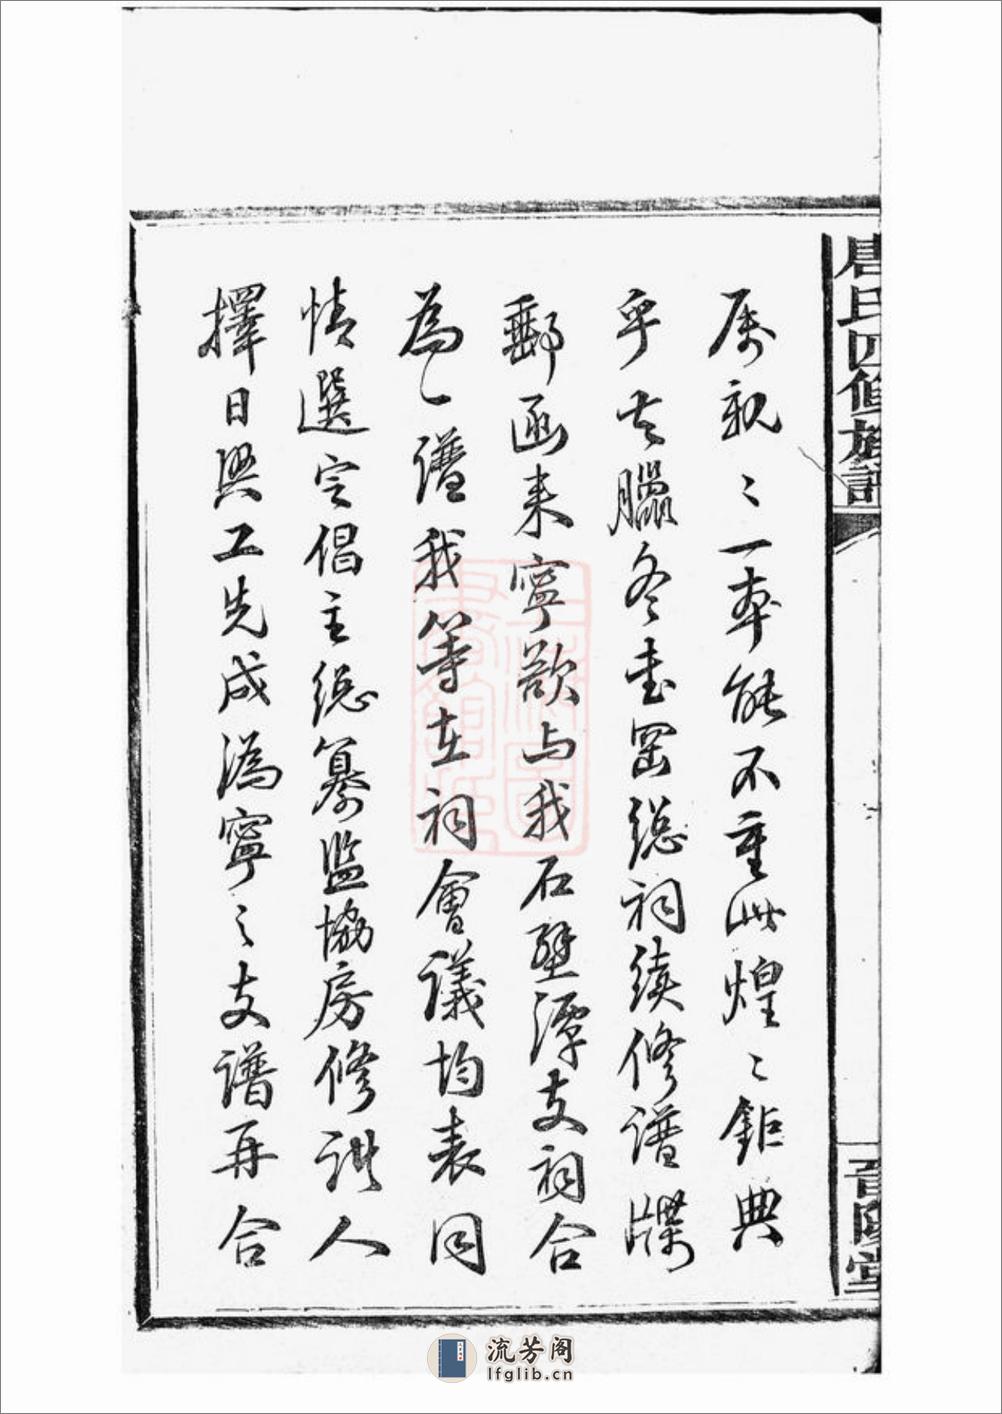 唐氏四修族譜
晉陽堂
属親〻一本能不重此煌〻鉅典
乎去臘冬壺罡總祠續修譜牒
郵函来寧欲与我石壁潭支祠合
為一譜我等在祠會議均表同
情選定倡主總纂监協房修诸人
擇日興工先成溈寧之支譜再合
流芳阁
lfglib.cn